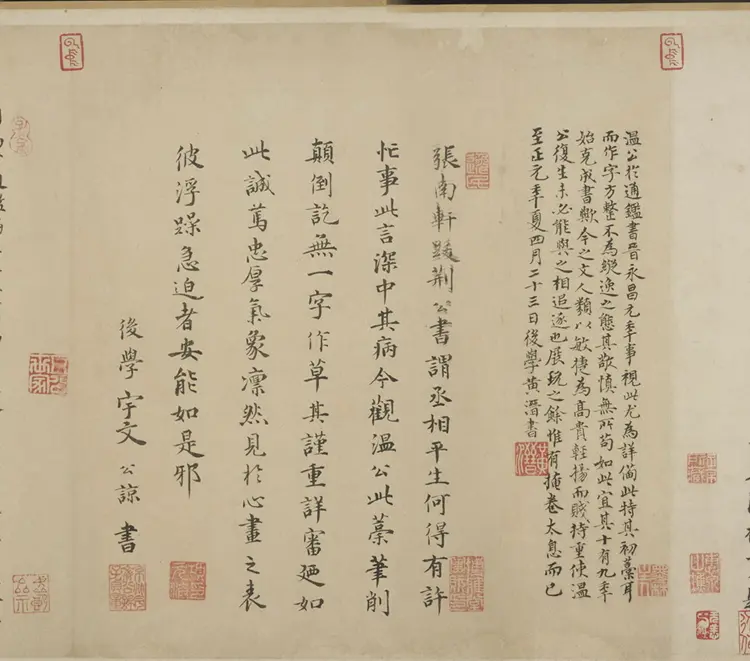 溫公於通鑑書晉永昌元年事視此尤為詳備此特其初藁耳
而作字方整不為縱逸之態其敬慎無所苟如此宜其十有九年
始克成書歟今之文人類以敏捷為高貴輕揚而賤持重使溫
公復生未必能與之相追逐也展玩之餘惟有掩卷太息而已
至正元年夏四月二十三日後學黃溍書
張南軒跋荊公書謂丞相平生何得有許
忙事此言深中其病今觀溫公此藁筆削
顛倒訖無一字作草其謹重詳審乃如
此誠篤忠厚氣象凜然見於心畫之表
彼浮躁急迫者安能如是邪
後學宇文公諒書